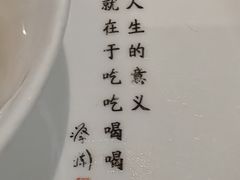 人生的意义
就在于吃吃喝喝
蔡澜